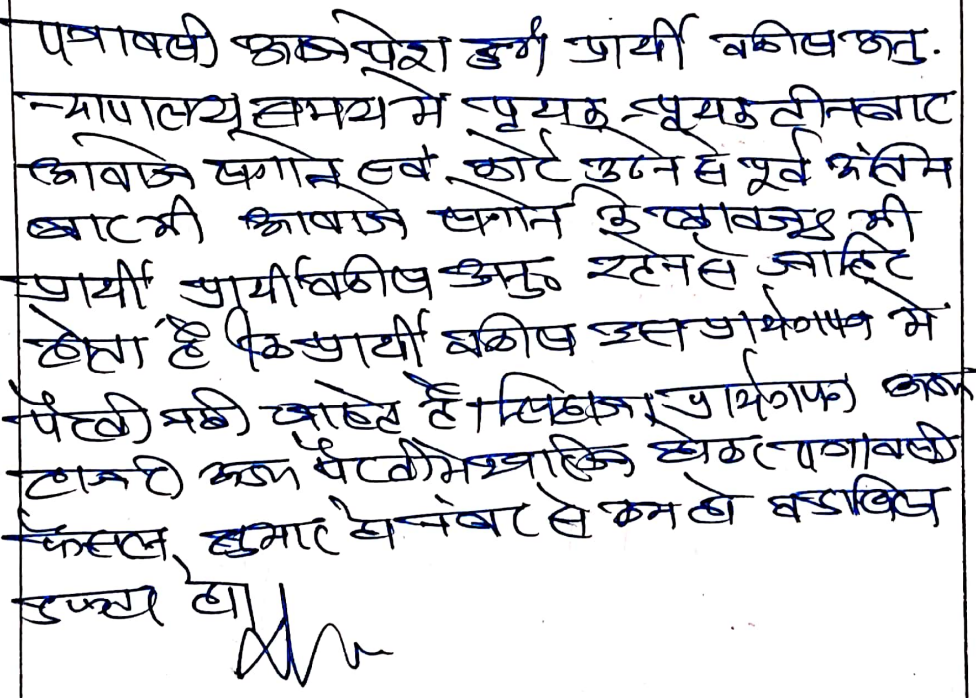 पत्रावली आज पेश हुई प्रार्थी वकील अनु.
न्यायालय समय में पृथक पृथक तीन बार
आवाजे लगाने एवं कोर्ट उठने से पूर्व अंतिम
बार भी आवाज लगाने के बावजूद भी
प्रार्थी प्रार्थी वकील अनु० रहने से जाहिर
होता है कि प्रार्थी वकील इस प्रार्थनापत्र में
पैरवी नही चाहते है। लिहाजा प्रार्थनापत्र अदम
हाजरी अदम पैरवी में खारिज होकर पत्रावली
फैसल शुमार हो नंबर से कम हो दाखिल
दफ्तर हो